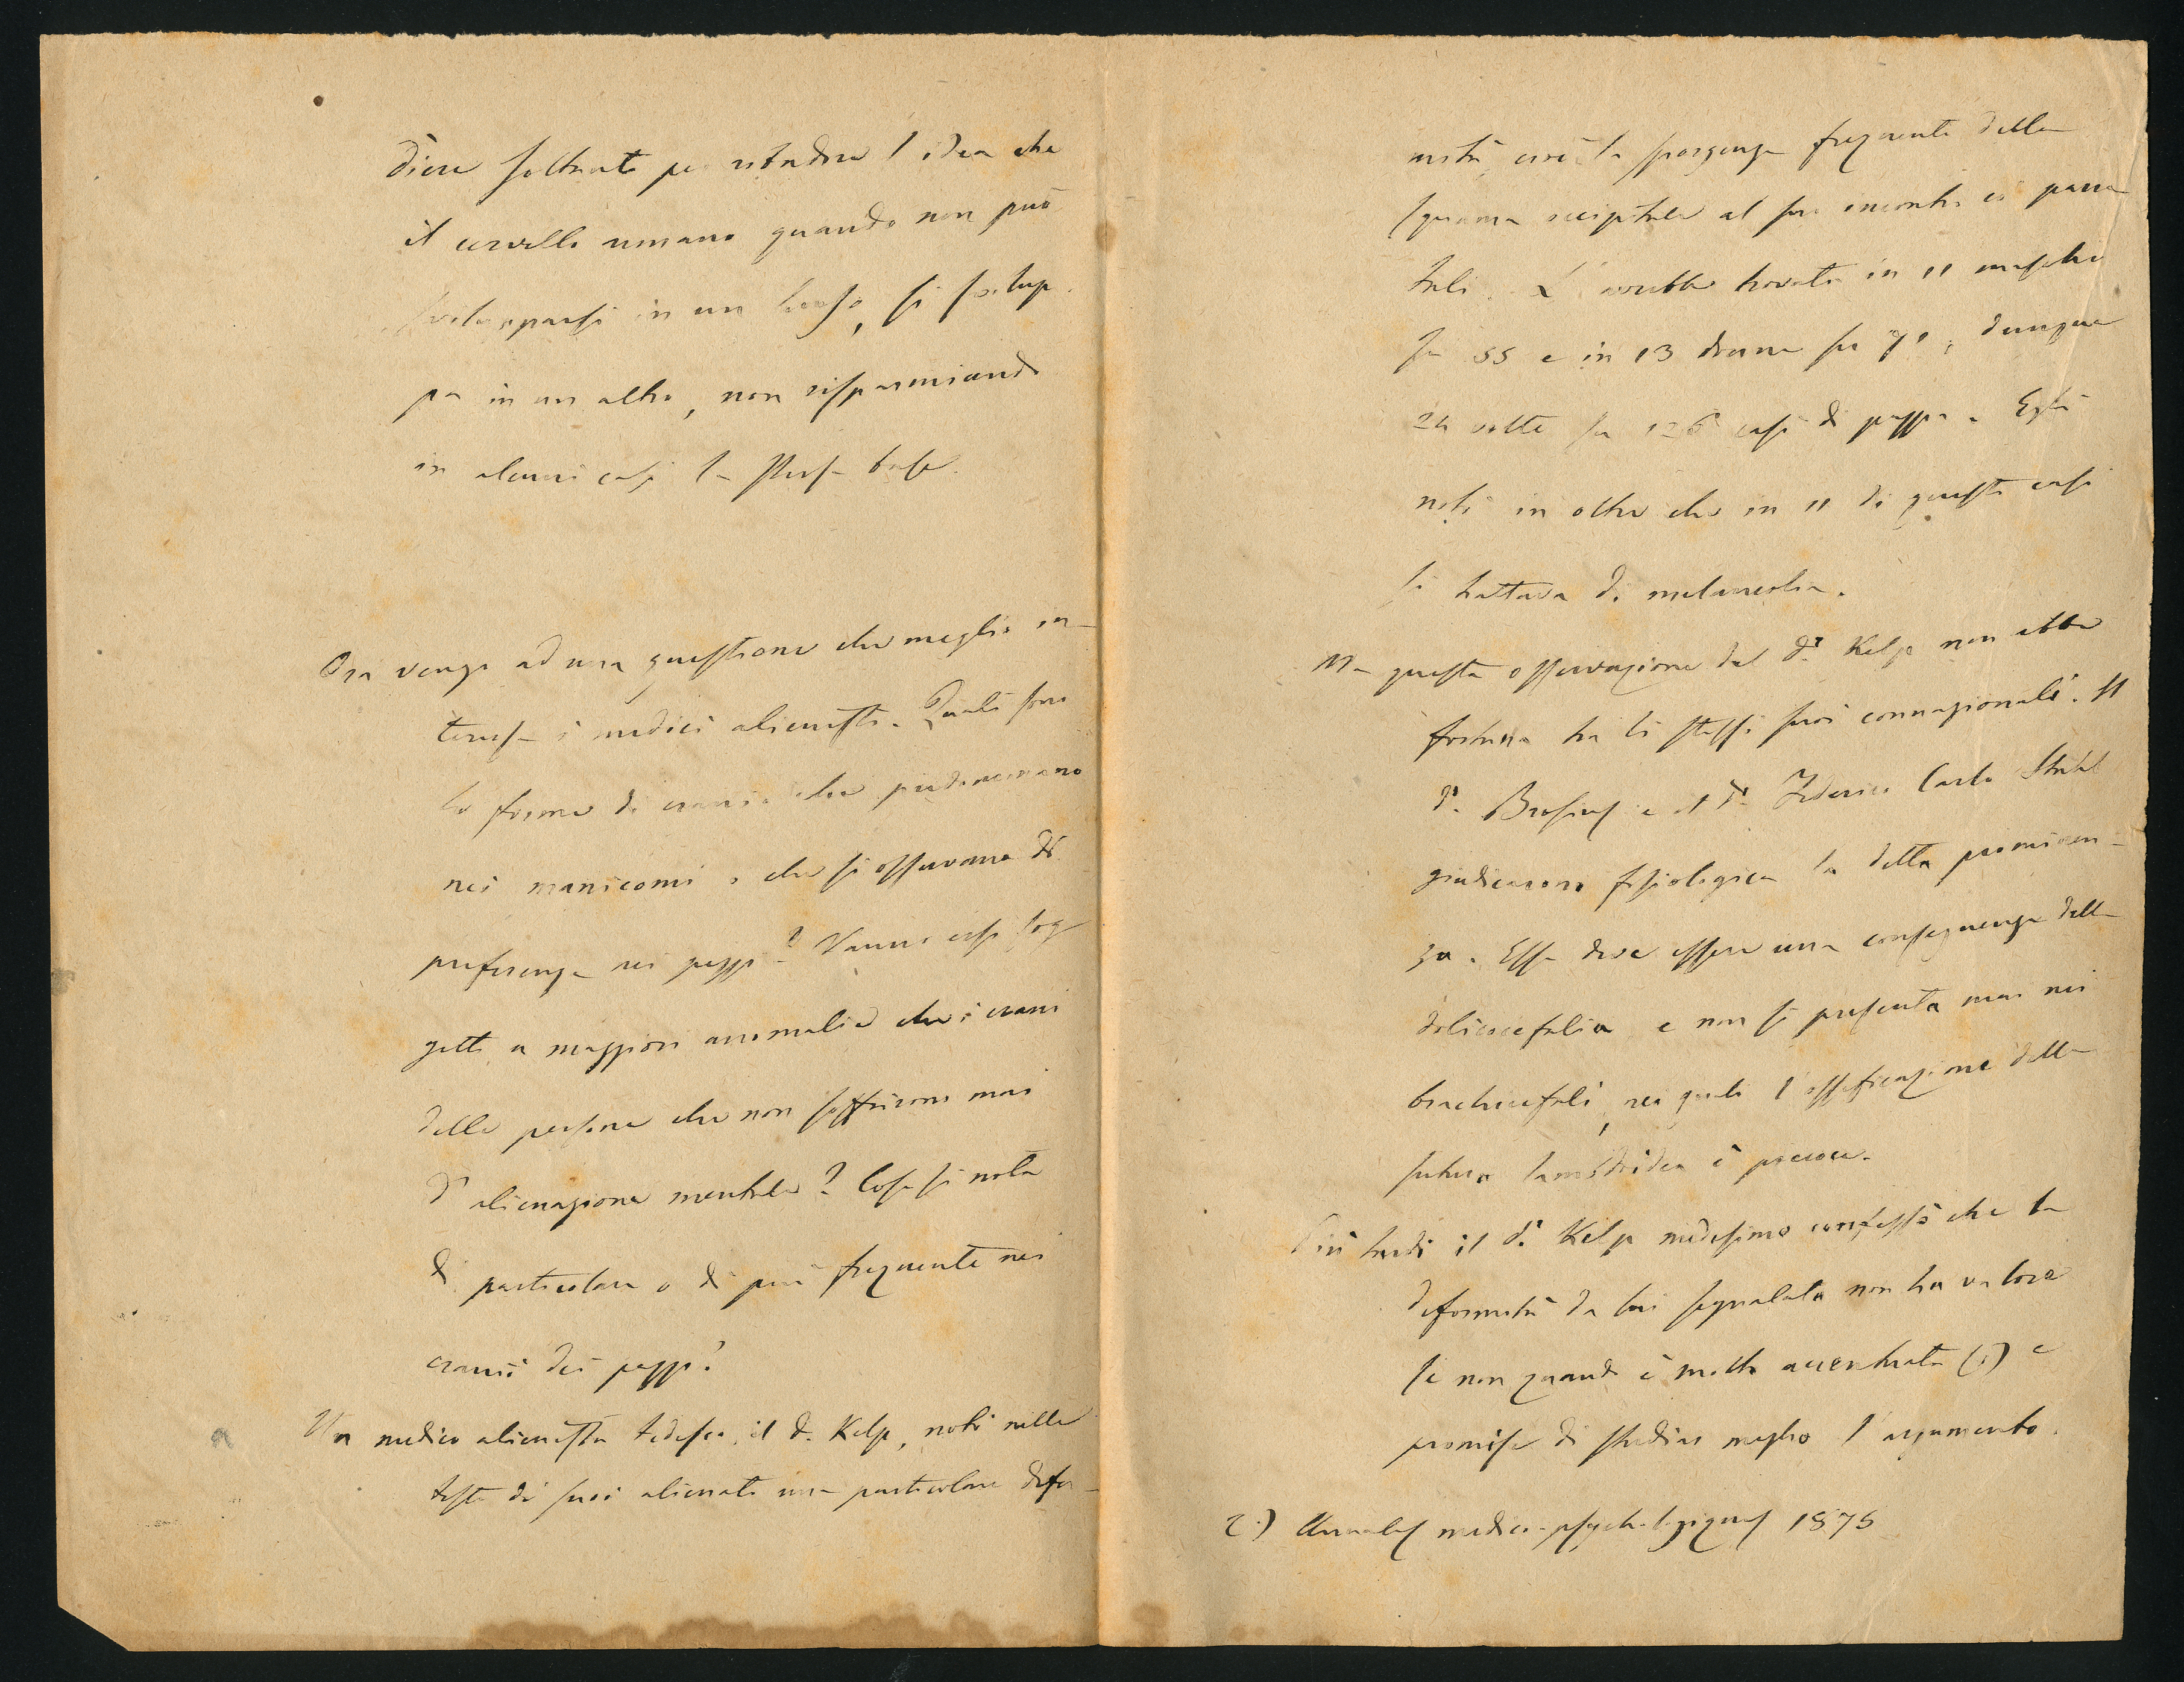 dicue soltanto per ribadire l'idea che
il cervello umano quando non può
svilupparsi in un senso, si svilup-
pa in un altro, non risparmiando
in alcuni casi la stessa base.
Ora vengo ad una questione che meglio in-
teressa i medici alienisti. Quali sono
le forme di cranio che predominano
nei manicomi, o che si osservano di
preferenza nei pazzi? Vanno essi sog-
getti a maggiori anomalie che i crani
delle persone che non soffrirono mai
d'alienazione mentale? Cosa si nota
di particolare o di più frequente nei
cranii dei pazzi?
Un medico alienista tedesco, il d.r Kelp, notò nelle
teste di suoi alienati una particolare defor-
mità, cioè la sporgenza frequente della
squama occipitale al suo incontro coi parie-
tali. L'avrebbe trovata in 11 maschi
su 55 e in 13 donne su 71, dunque
24 volte su 126 casi di pazzia. Egli
notò in oltre che in 11 di questi casi
si trattava di melanconia.
Ma questa osservazione del d.r Kelp non ebbe
fortuna tra li stessi suoi connazionali. Il
d.r Brosius e il d.r Federico Carlo Stahl
giudicarono fisiologica la detta prominen-
za. Essa deve essere una conseguenza della
dolicocefalia e non si presenta mai nei
brachicefali, nei quali l'ossificazione della
sutura lambdoidea è precoce.
Più tardi il d.r Kelp medesimo confessò che la
deformità da lui segnalata non ha valore
se non quando è molto accentuata (1) e
promise di studiar meglio l'argomento.
(1) Annales medico-psychologiques 1875